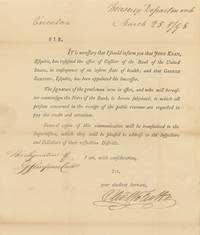 Treasury Department
Circular
March 25 1795
SIR,
IT is necessary that I should inform you that JOHN KEAN,
Esquire, has resigned the office of Cashier of the Bank of the United
States, in consequence of an infirm state of health; and that GEORGE
SIMPSON, Esquire, has been appointed his successor.
The signature of the gentleman now in office, and who will hereafter
countersign the Notes of the Bank, is hereto subjoined, to which all
persons concerned in the receipt of the public revenue are requested to
pay due credit and attention.
Several copies of this communication will be transmitted to the
Supervisors, which they will be pleased to address to the Inspectors
and Collectors of their respective Districts.
The signature of
I am, with consideration,
G Simpson
Sir,
your obedient Servant,
Oliv Wolcott